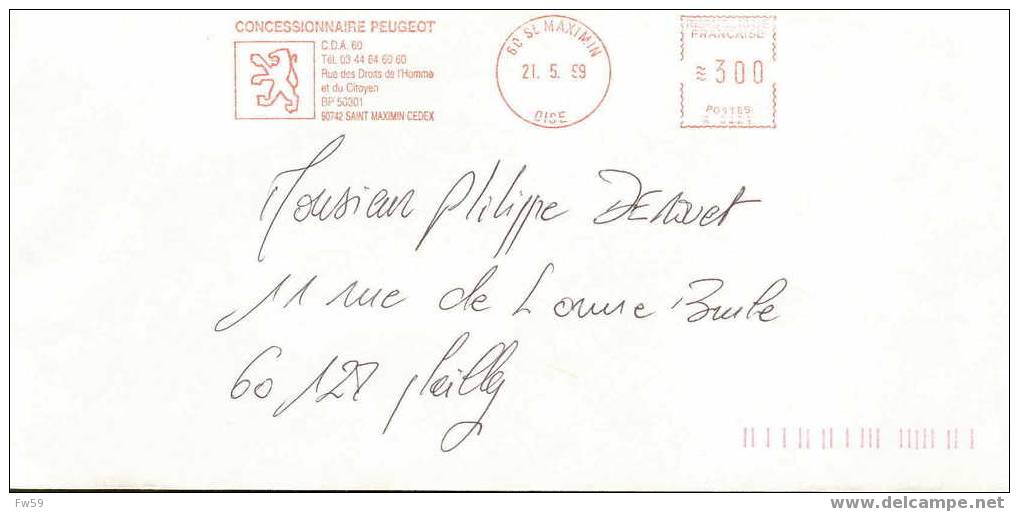 CONCESSIONNAIRE PEUGEOT
C.D.A. 60
Tél. 03 44 64 60 60
Rue des Droits de l'Homme
et du Citoyen
BP 50301
60742 SAINT MAXIMIN CEDEX
60 St MAXIMIN
21. 5. 99
OISE
FRANÇAISE
300
POSTES
Monsieur Philippe DEnouet
11 rue de L'orme Brule
60 127
Fw59
www.delcampe.net